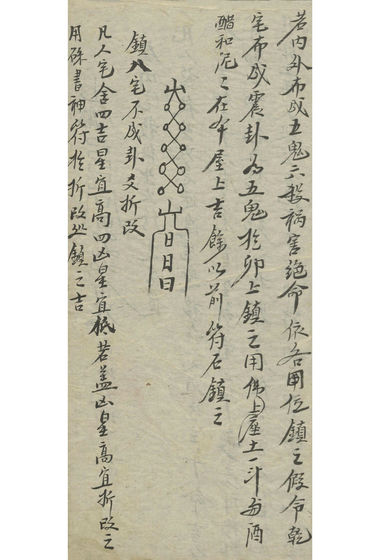 若內外布成五鬼六殺禍害絕命依各用位鎮之假令乾
宅布成震卦為五鬼於卯上鎮之用佛上座土一斗酒
醋和泥之在本屋上吉餘以前符石鎮之
山
山日日日
鎮八宅不成卦爻折改
凡人宅舍四吉星宜高四凶星宜低若蓋凶星高宜折改之
用硃書神符於折改處鎮之吉